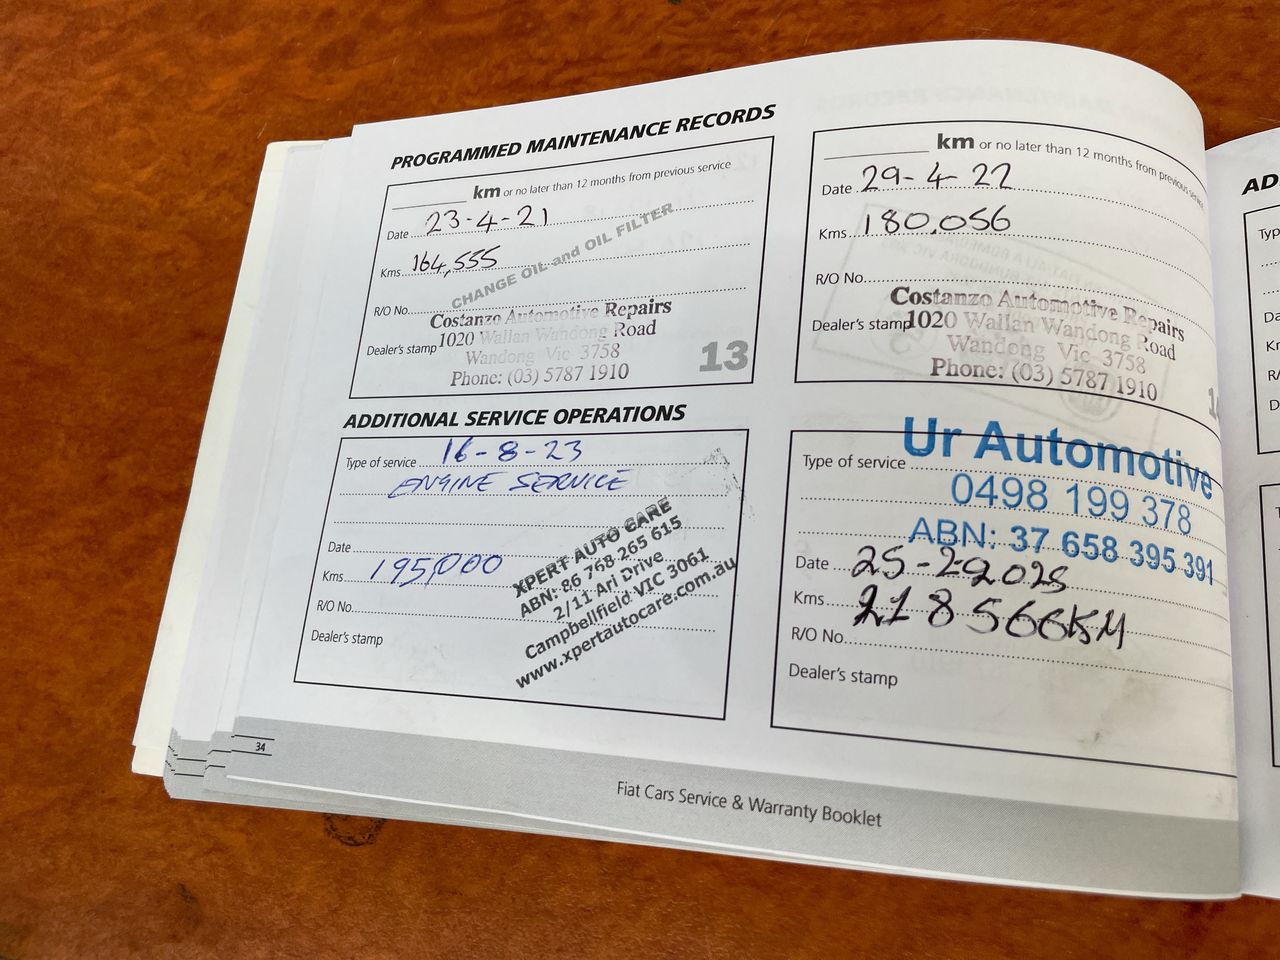 PROGRAMMED MAINTENANCE RECORDS
km or no later than 12 months from previous service
Date 23-4-21
Kms 164,555
R/O No.
CHANGE OIL and OIL FILTER
Dealer's stamp
Costanzo Automotive Repairs
1020 Wallan Wandong Road
Wandong Vic 3758
Phone: (03) 5787 1910
13
km or no later than 12 months from previous service
Date 29-4-22
Kms 180,056
R/O No.
Dealer's stamp
Costanzo Automotive Repairs
1020 Wallan Wandong Road
Wandong Vic 3758
Phone: (03) 5787 1910
ADDITIONAL SERVICE OPERATIONS
Type of service 16-8-23
ENGINE SERVICE
Date
Kms 195,000
R/O No.
Dealer's stamp
XPERT AUTO CARE
ABN: 86 768 265 615
2/11 Ari Drive
Campbellfield VIC 3061
www.xpertautocare.com.au
Ur Automotive
Type of service
0498 199 378
ABN: 37 658 395 391
Date 25-2-2025
Kms 218566KM
R/O No.
Dealer's stamp
34
Fiat Cars Service & Warranty Booklet